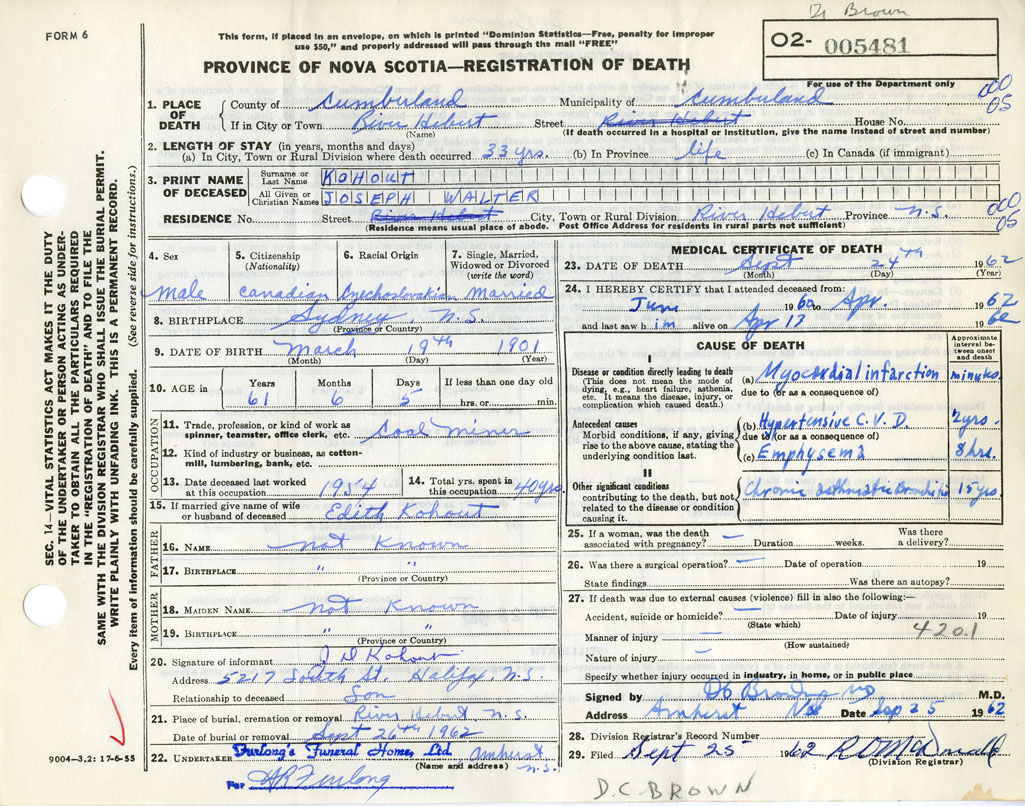 Dr Brown
FORM 6
This form, if placed in an envelope, on which is printed "Dominion Statistics—Free, penalty for improper
use $50," and properly addressed will pass through the mail "FREE"
O2- 005481
PROVINCE OF NOVA SCOTIA—REGISTRATION OF DEATH
For use of the Department only
1. PLACE OF DEATH County of Cumberland Municipality of Cumberland 000
If in City or Town River Hebert Street River Hebert House No. 05
(Name) (If death occurred in a hospital or institution, give the name instead of street and number)
2. LENGTH OF STAY (in years, months and days)
(a) In City, Town or Rural Division where death occurred 33 yrs. (b) In Province life (c) In Canada (if immigrant)
3. PRINT NAME OF DECEASED Surname or Last Name KOHOUT
All Given or Christian Names JOSEPH WALTER
RESIDENCE No. Street River Hebert City, Town or Rural Division River Hebert Province N.S. 000
05
(Residence means usual place of abode. Post Office Address for residents in rural parts not sufficient)
4. Sex 5. Citizenship (Nationality) 6. Racial Origin 7. Single, Married, Widowed or Divorced (write the word)
Male Canadian Czechoslovakian Married
8. BIRTHPLACE Sydney, N.S.
(Province or Country)
9. DATE OF BIRTH March 19th 1901
(Month) (Day) (Year)
10. AGE in Years Months Days If less than one day old
61 6 5 hrs. or min.
OCCUPATION
11. Trade, profession, or kind of work as
spinner, teamster, office clerk, etc. Coal Miner
12. Kind of industry or business, as cotton-
mill, lumbering, bank, etc.
13. Date deceased last worked at this occupation 1954 14. Total yrs. spent in this occupation 40 yrs.
15. If married give name of wife
or husband of deceased Edith Kohout
FATHER
16. NAME not Known
17. BIRTHPLACE " "
(Province or Country)
MOTHER
18. MAIDEN NAME not Known
19. BIRTHPLACE " "
(Province or Country)
20. Signature of informant J D Kohout
Address 5217 South St. Halifax, N.S.
Relationship to deceased Son
21. Place of burial, cremation or removal River Hebert, N.S.
Date of burial or removal Sept 26th 1962
22. UNDERTAKER Furlong's Funeral Home, Ltd Amherst N.S.
(Name and address)
For Furlong
MEDICAL CERTIFICATE OF DEATH
23. DATE OF DEATH Sept 24th 1962
(Month) (Day) (Year)
24. I HEREBY CERTIFY that I attended deceased from:
June 1960 to Apr. 1962
and last saw him alive on Apr 13 1962
CAUSE OF DEATH
Approximate interval between onset and death
I
Disease or condition directly leading to death
(This does not mean the mode of dying, e.g., heart failure, asthenia, etc. It means the disease, injury, or complication which caused death.)
(a) Myocardial infarction minutes.
due to (or as a consequence of)
Antecedent causes
Morbid conditions, if any, giving rise to the above cause, stating the underlying condition last.
(b) Hypertensive C.V.D. 2 yrs.
due to (or as a consequence of)
(c) Emphysema 8 hrs.
II
Other significant conditions
contributing to the death, but not related to the disease or condition causing it.
Chronic asthmatic Bronchitis 15 yrs
25. If a woman, was the death associated with pregnancy? — Duration weeks. Was there a delivery?
26. Was there a surgical operation? — Date of operation 19
State findings Was there an autopsy?
27. If death was due to external causes (violence) fill in also the following:—
Accident, suicide or homicide? — Date of injury 19
(State which) 420.1
Manner of injury —
(How sustained)
Nature of injury —
Specify whether injury occurred in industry, in home, or in public place
Signed by M.D.
Address Amherst NS Date Sep 25 1962
28. Division Registrar's Record Number
29. Filed Sept 25 1962
(Division Registrar)
D.C. BROWN
SEC. 14—VITAL STATISTICS ACT MAKES IT THE DUTY
OF THE UNDERTAKER OR PERSON ACTING AS UNDER-
TAKER TO OBTAIN ALL THE PARTICULARS REQUIRED
IN THE "REGISTRATION OF DEATH" AND TO FILE THE
SAME WITH THE DIVISION REGISTRAR WHO SHALL ISSUE THE BURIAL PERMIT.
WRITE PLAINLY WITH UNFADING INK. THIS IS A PERMANENT RECORD.
Every item of information should be carefully supplied. (See reverse side for instructions.)
9004—3.2: 17-6-55